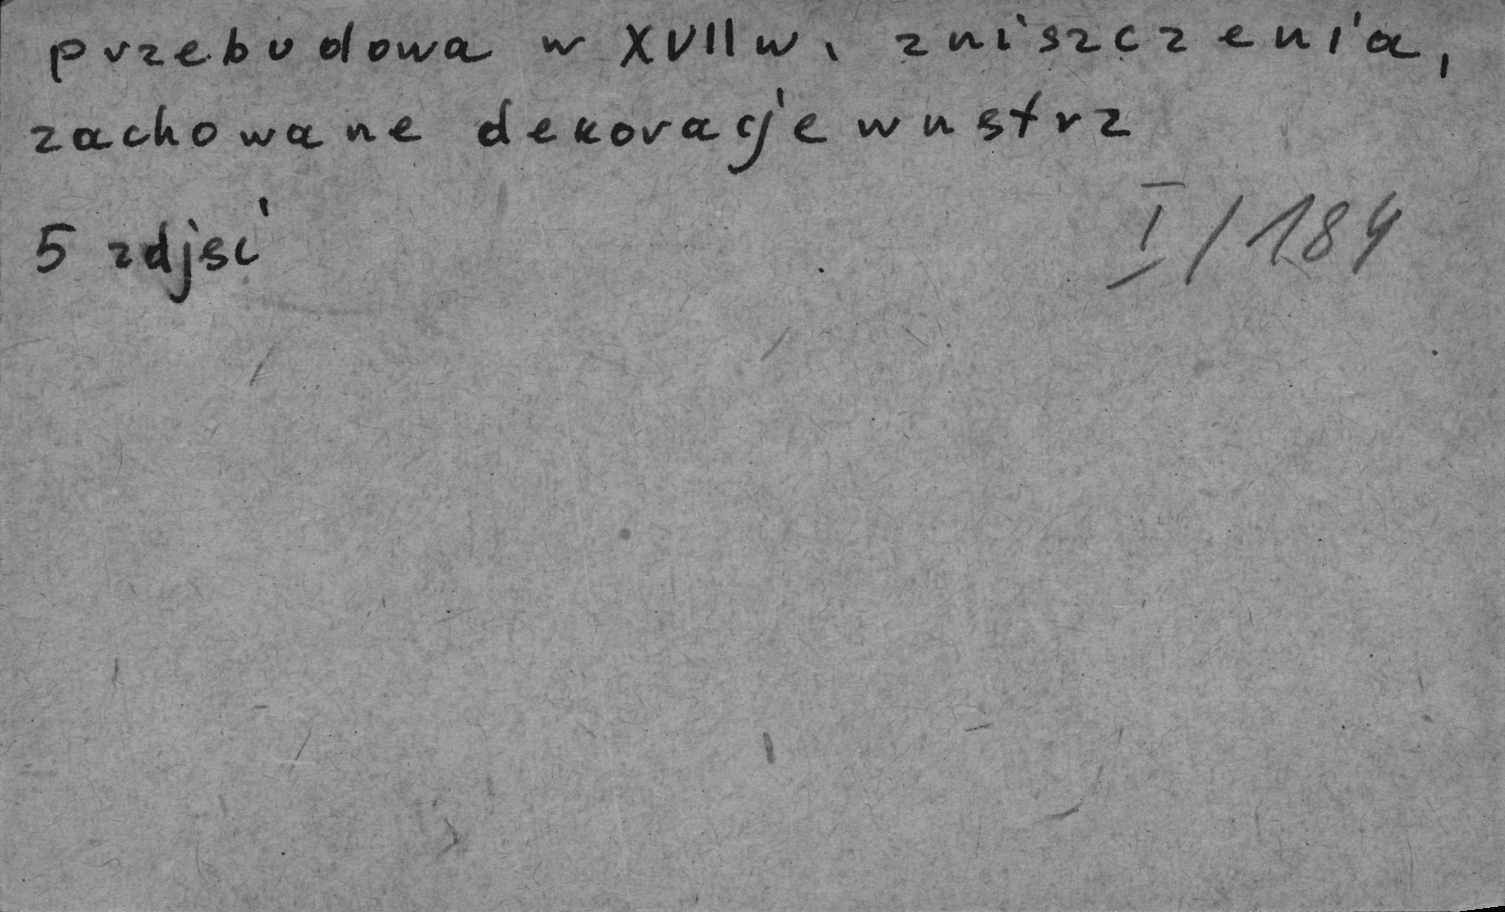 przebudowa w XVII w, zniszczenia,
zachowane dekoracje wnstrz
5 zdjsć
I/184